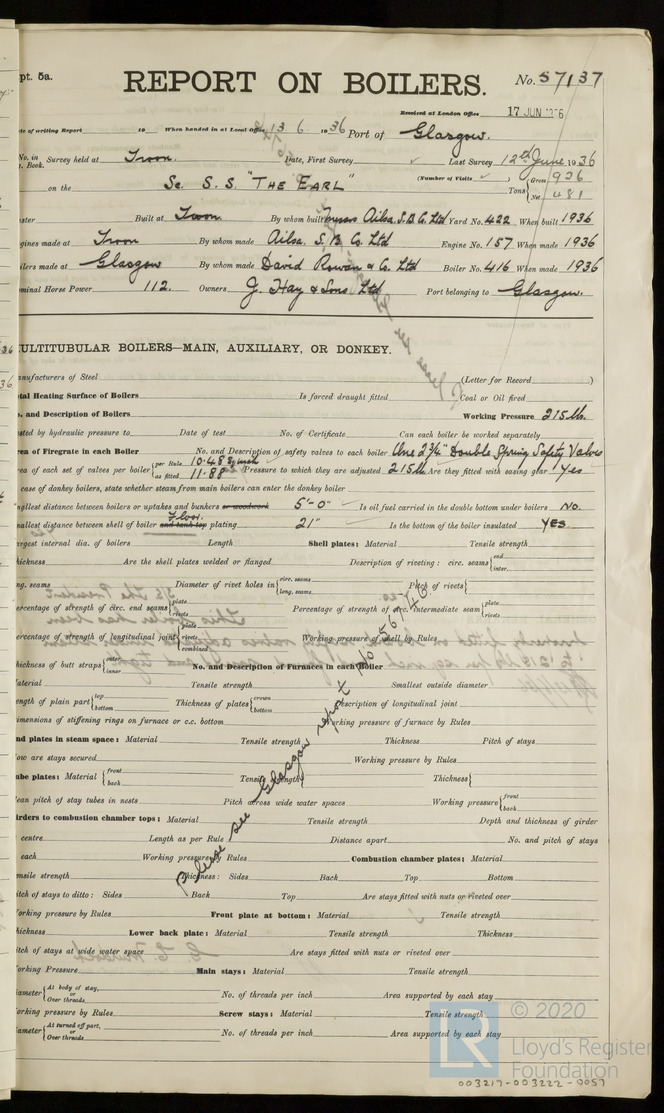 pt. 5a.
REPORT ON BOILERS.
No. 57137
Received at London Office 17 JUN 1936
te of writing Report 19 When handed in at Local Office 13 6 1936 Port of Glasgow.
No. in g. Book. Survey held at Troon. Date, First Survey Last Survey 12th June 1936
on the Sc. S.S. "THE EARL" (Number of Visits) Tons { Gross 926 Net 481
ster Built at Troon. By whom built Messrs Ailsa. S.B. Co. Ltd Yard No. 422 When built 1936
gines made at Troon By whom made Ailsa. S.B. Co. Ltd Engine No. 157 When made 1936
ilers made at Glasgow By whom made David Rowan & Co. Ltd Boiler No. 416 When made 1936
minal Horse Power 112. Owners J. Hay & Sons Ltd Port belonging to Glasgow.
ULTITUBULAR BOILERS—MAIN, AUXILIARY, OR DONKEY.
anufacturers of Steel (Letter for Record )
tal Heating Surface of Boilers Is forced draught fitted Coal or Oil fired
o. and Description of Boilers Working Pressure 215 lb.
sted by hydraulic pressure to Date of test No. of Certificate Can each boiler be worked separately
rea of Firegrate in each Boiler No. and Description of safety valves to each boiler One 2¾" Double Spring Safety Valves
ea of each set of valves per boiler { per Rule 10.48 as fitted 11.88 Pressure to which they are adjusted 215 lb Are they fitted with easing gear Yes
case of donkey boilers, state whether steam from main boilers can enter the donkey boiler
allest distance between boilers or uptakes and bunkers or woodwork 5'-0" Is oil fuel carried in the double bottom under boilers No.
allest distance between shell of boiler and tank top Floor plating 21" Is the bottom of the boiler insulated Yes
rgest internal dia. of boilers Length Shell plates: Material Tensile strength
hickness Are the shell plates welded or flanged Description of riveting: circ. seams { end inter.
ng. seams Diameter of rivet holes in { circ. seams long. seams Pitch of rivets {
ercentage of strength of circ. end seams { plate rivets Percentage of strength of circ. intermediate seam { plate rivets
ercentage of strength of longitudinal joint { plate rivets combined Working pressure of shell by Rules
hickness of butt straps { outer inner No. and Description of Furnaces in each Boiler
aterial Tensile strength Smallest outside diameter
ength of plain part { top bottom Thickness of plates { crown bottom Description of longitudinal joint
imensions of stiffening rings on furnace or c.c. bottom Working pressure of furnace by Rules
nd plates in steam space: Material Tensile strength Thickness Pitch of stays
ow are stays secured Working pressure by Rules
ube plates: Material { front back Tensile strength Thickness {
ean pitch of stay tubes in nests Pitch across wide water spaces Working pressure { front back
irders to combustion chamber tops: Material Tensile strength Depth and thickness of girder
centre Length as per Rule Distance apart No. and pitch of stays
each Working pressure by Rules Combustion chamber plates: Material
ensile strength Thickness: Sides Back Top Bottom
itch of stays to ditto: Sides Back Top Are stays fitted with nuts or riveted over
orking pressure by Rules Front plate at bottom: Material Tensile strength
hickness Lower back plate: Material Tensile strength Thickness
itch of stays at wide water space Are stays fitted with nuts or riveted over
orking Pressure Main stays: Material Tensile strength
iameter { At body of stay, or Over threads No. of threads per inch Area supported by each stay
orking pressure by Rules Screw stays: Material Tensile strength
iameter { At turned off part, or Over threads No. of threads per inch Area supported by each stay
please see Glasgow report No 56740
LR
© 2020
Lloyd's Register
Foundation
003217-003222-0057